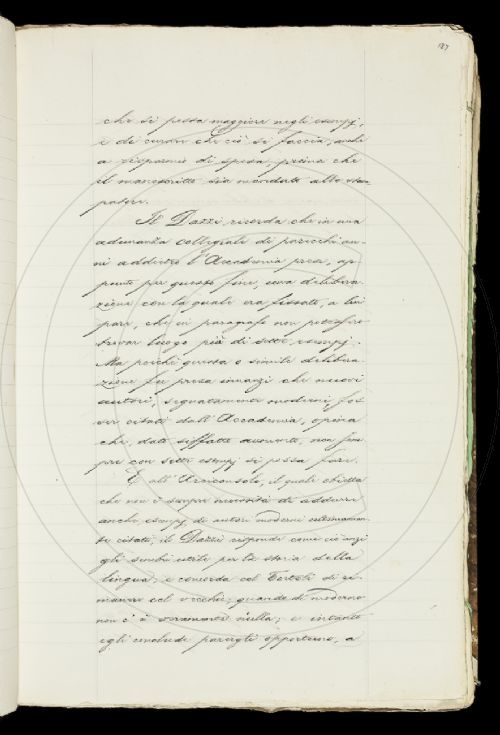 187
che si possa maggiore negli esempj,
e di curare che ciò si faccia, anche
a risparmio di spesa, prima che
il manoscritto sia mandato allo stam-
patore.
Il Dazzi ricorda che in una
adunanza collegiale di parecchi an-
ni addietro l'Accademia prese, ap-
punto per questo fine, una delibera-
zione con la quale era fissato, a lui
pare, che in paragrafo non potessero
trovar luogo più di sette esempj.
Ma perchè questa o simile delibera-
zione fu presa innanzi che nuovi
autori, segnatamente moderni, fos-
ser citati dall'Accademia, opina
che, date siffatte avvertenze, non sem-
pre con sette esempj si possa fare.
E all'Arciconsolo, il quale chiede
che non è sempre necessità di addurre
anche esempj di autori moderni
citati, il Dazzi risponde come ciò anzi
gli sembri utile per la storia della
lingua; e concorda col Tortoli di ri-
manere col vecchio, quando di moderno
non c'è veramente nulla; e intanto
egli conclude parergli opportuno, a